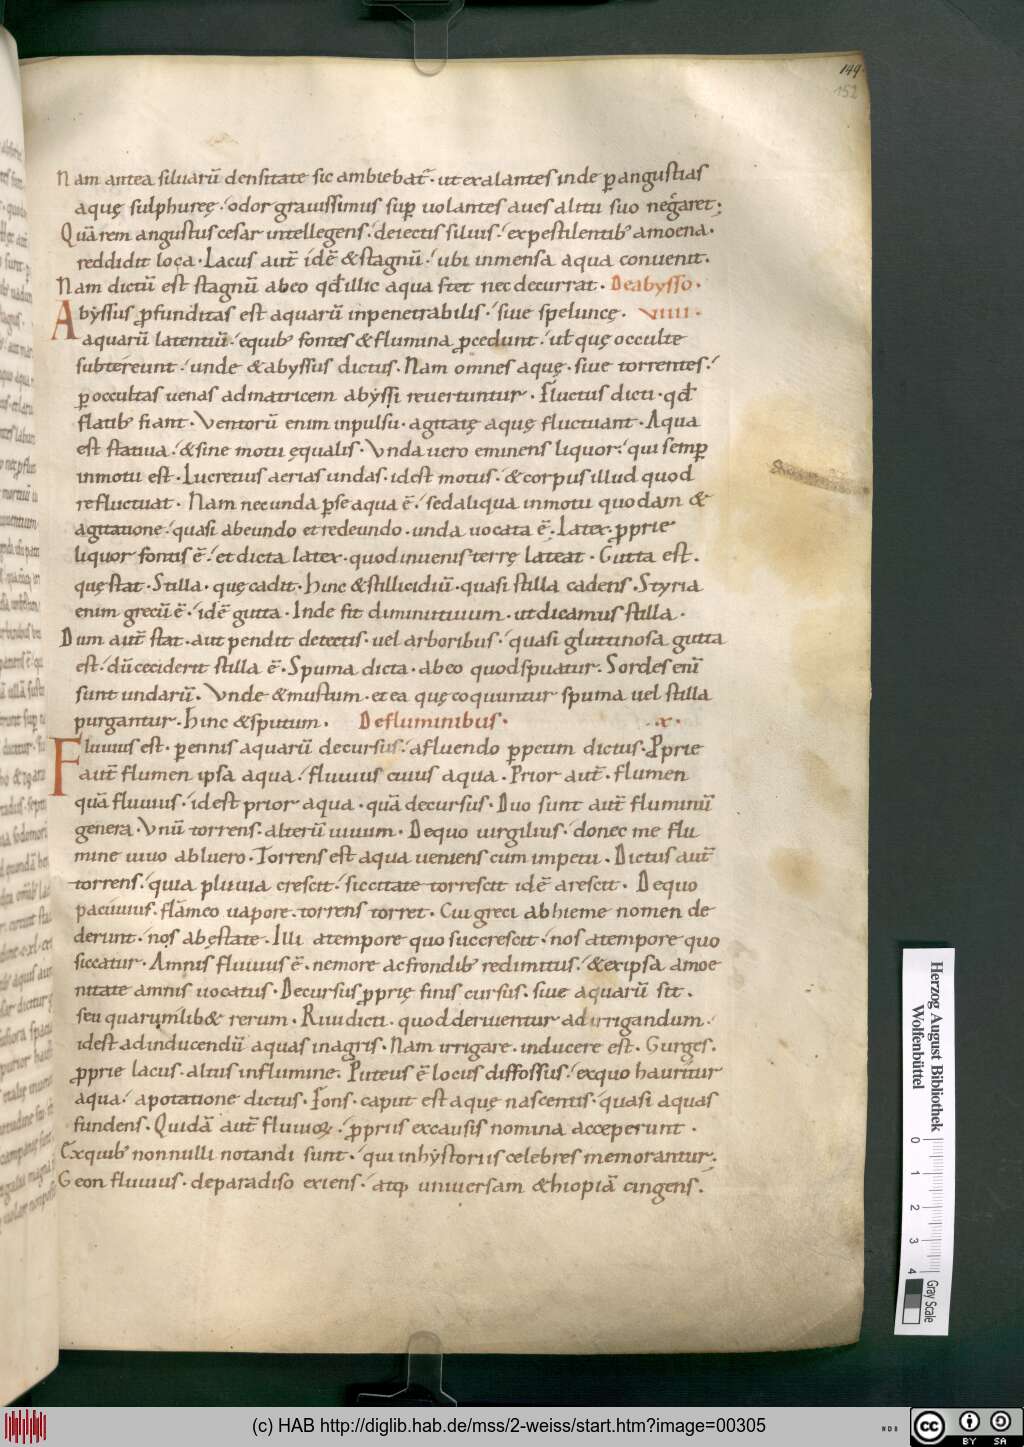 149
152
Nam antea siluarū densitate sic ambiebat̄· ut exalantes inde ꝑ angustias
aquę sulphureę· odor grauissimus suꝑ uolantes aues alitu suo negaret;
Quārem angustus cesar intellegens· deiectis siluis· expestilentib amoena·
reddidit loca· Lacus aut̄ idē & stagnū· ubi inmensa aqua conuenit·
Nam dictū est stagnū abeo qđ illic aqua stet nec decurrat· De abysso·
Abẏssus ꝓfunditas est aquarū inpenetrabilis· siue speluncę· VIIII·
aquarū latentiū· e quib fontes & flumina ꝓcedunt· ut quę occulte
subtereunt· unde & abyssus dictus· Nam omnes aquę· siue torrentes·
ꝑ occultas uenas ad matricem abẏssi reuertuntur· Fluctus dicti· qđ
flatib fiant· Ventorū enim inpulsu· agitatę aquę fluctuant· Aqua
est statiua· & sine motu ęqualis· Vnda uero eminens liquor· qui semꝑ
in motu est· Lucretius aerias undas· idest motus· & corpus illud quod
refluctuat· Nam nec unda ꝑ se aqua ē· sed aliqua in motu quodam &
agitatione· quasi abeundo et redeundo· unda uocata ē· Latex· ꝓprie
liquor fontis ē· et dicta latex· quod in uenis terrę lateat· Gutta est·
quę stat· Stilla· quę cadit· hinc & stillicidiū· quasi stilla cadens· Styria
enim grecū ē· idē gutta· Inde fit diminutiuum· ut dicamus stilla·
Dum aut̄ stat· aut pendit detectis· uel arboribus· quasi glutinosa gutta
est· dū ceciderit stilla ē· Spuma dicta· abeo quod spuatur· Sordes enī
sunt undarū· Vnde & mustum· et ea quę coquuntur spuma uel stilla
purgantur· Hinc & sputum· De fluminibus· x·
Fluuius est· ꝑennis aquarū decursus· afluendo ꝑpetim dictus· Pprie
aut̄ flumen ipsa aqua· fluuius cuius aqua· Prior aut̄· flumen
quā fluuius· idest prior aqua· quā decursus· Duo sunt aut̄ fluminū
genera· Vnū torrens· alterū uiuum· De quo uirgilius· donec me flu
mine uiuo abluero· Torrens est aqua ueniens cum impetu· Dictus aut̄
torrens· quia pluuia crescit· siccitate torrescit idē arescit· De quo
pacuuius· flāmeo uapore· torrens torret· Cui greci ab hieme nomen de
derunt· nos ab ęstate· Illi a tempore quo succrescit· nos a tempore quo
siccatur· Amnis fluuius ē· nemore ac frondib redimitus· & ex ipsa amoe
nitate amnis uocatus· Decursus ꝓprię finis cursus· siue aquarū sit·
seu quarumlib& rerum· Riui dicti· quod deriuentur ad irrigandum·
idest ad inducendū aquas in agris· Nam irrigare· inducere est· Gurges·
ꝓprie lacus· altus in flumine· Puteus ē locus diffossus· ex quo hauritur
aqua· a potatione dictus· Fons· caput est aquę nascentis· quasi aquas
fundens· Quidā aut̄ fluuioꝝ· ꝓpriis ex causis nomina acceperunt·
Ex quib nonnulli notandi sunt· qui in hẏstoriis celebres memorantur·
Geon fluuius· de paradiso exiens· atqꝫ uniuersam &hiopiā cingens·
Herzog August Bibliothek
Wolfenbüttel
0 1 2 3 4
Gray Scale
(c) HAB http://diglib.hab.de/mss/2-weiss/start.htm?image=00305
cc BY SA